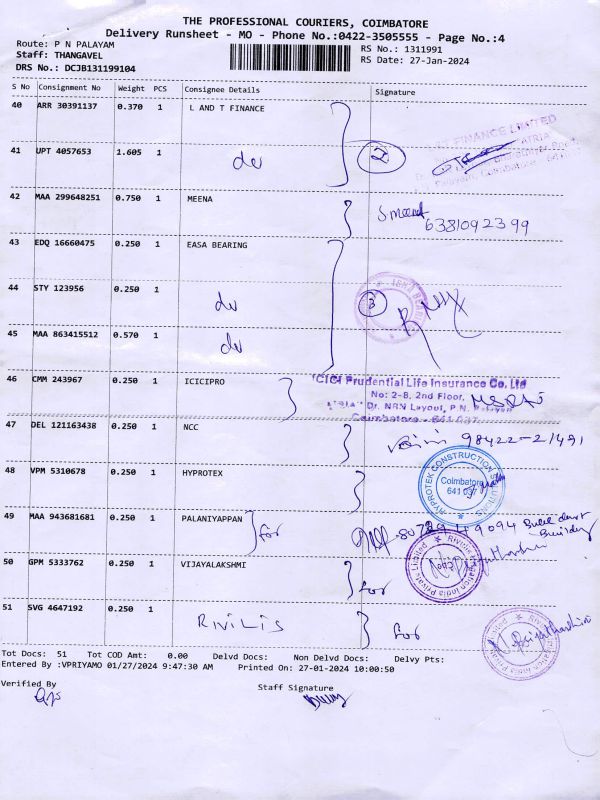 THE PROFESSIONAL COURIERS, COIMBATORE
Delivery Runsheet - MO - Phone No.:0422-3505555 - Page No.:4
Route: P N PALAYAM
RS No.: 1311991
Staff: THANGAVEL
RS Date: 27-Jan-2024
DRS No.: DCJB131199104
S No Consignment No Weight PCS Consignee Details Signature
40 ARR 30391137 0.370 1 L AND T FINANCE
FINANCE LIMITED
41 UPT 4057653 1.605 1 do 2
42 MAA 299648251 0.750 1 MEENA
6381092399
43 EDQ 16660475 0.250 1 EASA BEARING
44 STY 123956 0.250 1 do 3
45 MAA 863415512 0.570 1 do
46 CMM 243967 0.250 1 ICICIPRO
ICICI Prudential Life Insurance Co. Ltd
No: 2-8, 2nd Floor,
Dr. NRN Layout, P.N.
Coimbatore - 641 037
47 DEL 121163438 0.250 1 NCC
48 VPM 5310678 0.250 1 HYPROTEX
HYPROTEK CONSTRUCTION
Coimbatore
641 037
49 MAA 943681681 0.250 1 PALANIYAPPAN for
Building
50 GPM 5333762 0.250 1 VIJAYALAKSHMI for
Rivulis Irrigation India Private Limited
51 SVG 4647192 0.250 1 RIVILIS for
Tot Docs: 51 Tot COD Amt: 0.00 Delvd Docs: Non Delvd Docs: Delvy Pts:
Entered By :VPRIYAMO 01/27/2024 9:47:30 AM Printed On: 27-01-2024 10:00:50
Verified By
Staff Signature